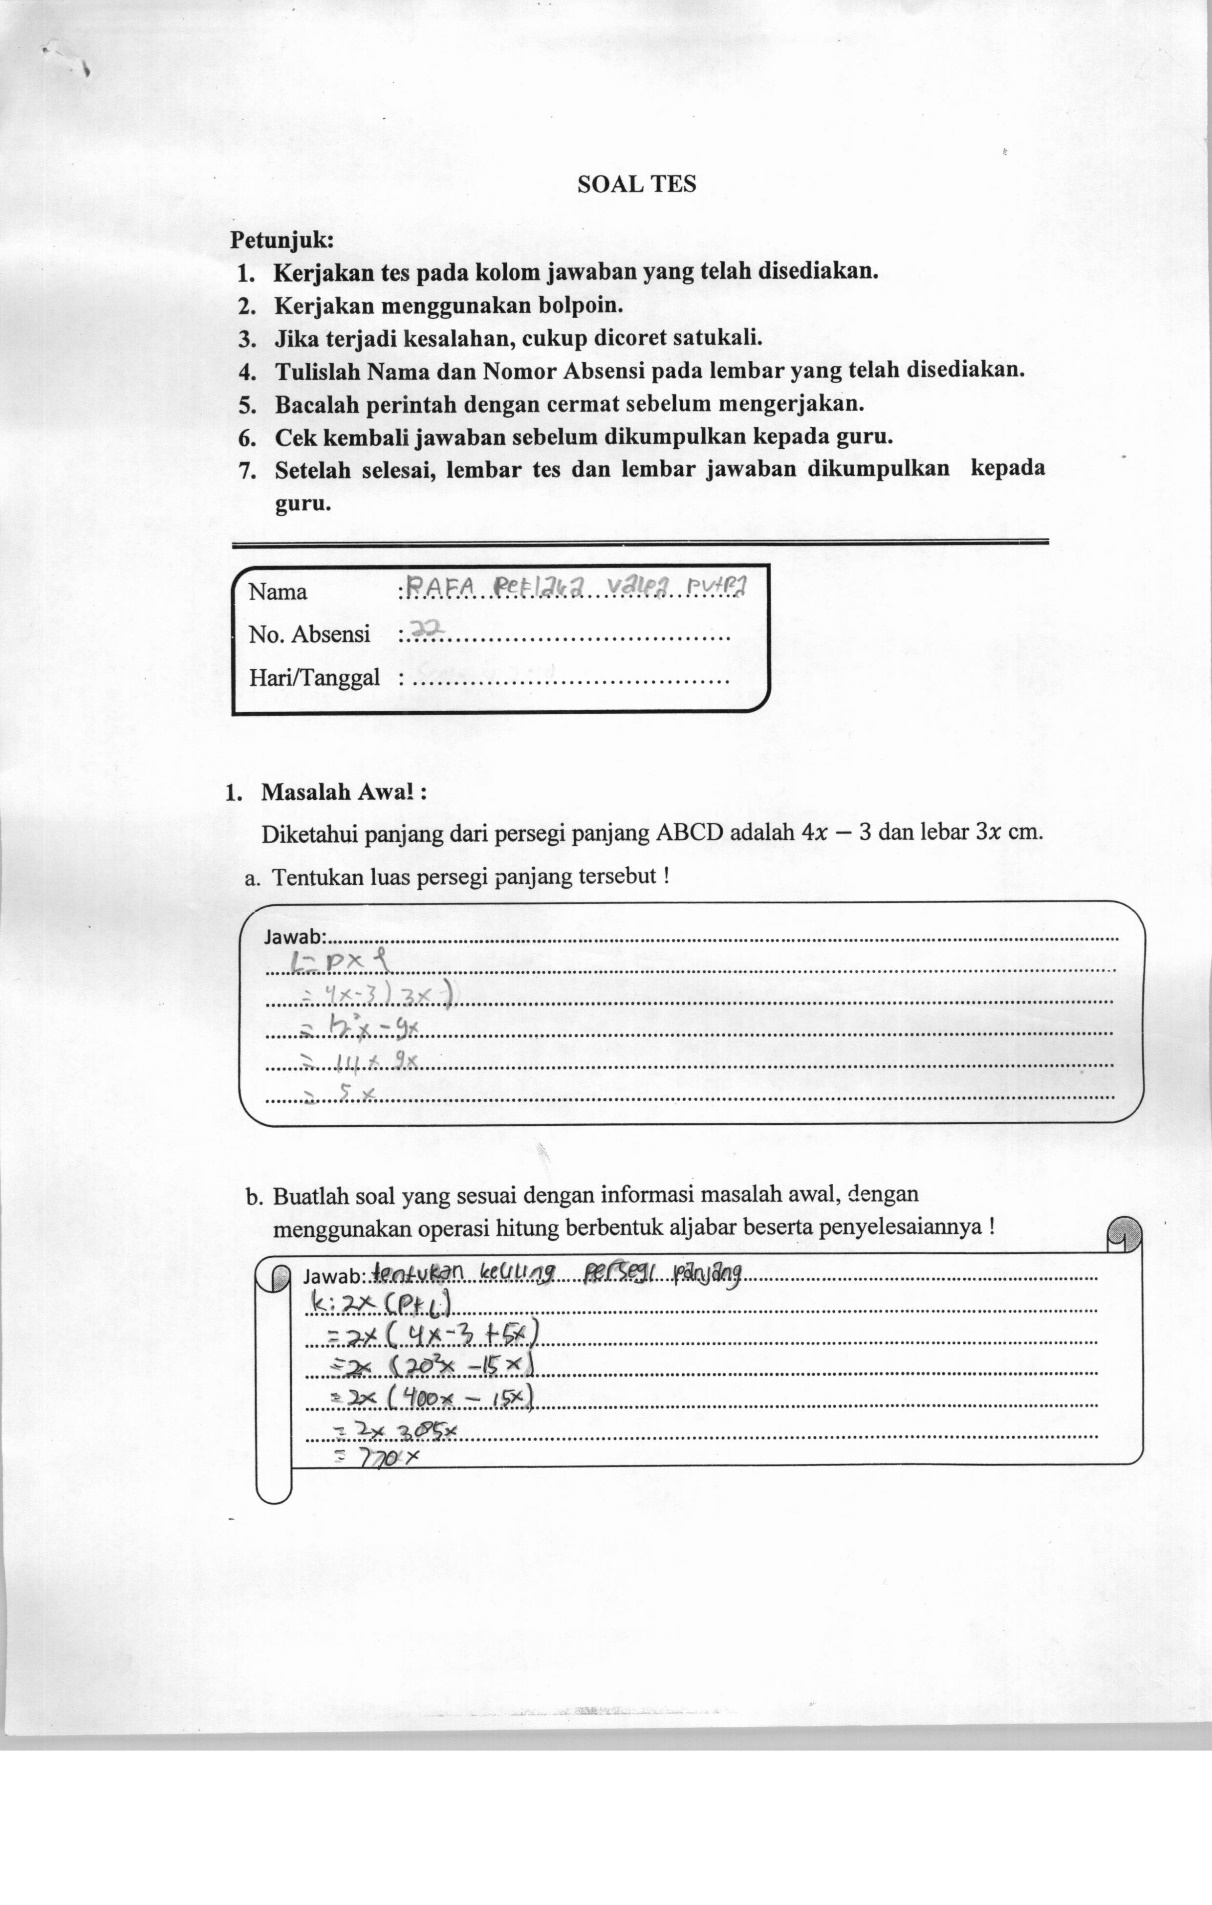 SOAL TES
Petunjuk:
1. Kerjakan tes pada kolom jawaban yang telah disediakan.
2. Kerjakan menggunakan bolpoin.
3. Jika terjadi kesalahan, cukup dicoret satukali.
4. Tulislah Nama dan Nomor Absensi pada lembar yang telah disediakan.
5. Bacalah perintah dengan cermat sebelum mengerjakan.
6. Cek kembali jawaban sebelum dikumpulkan kepada guru.
7. Setelah selesai, lembar tes dan lembar jawaban dikumpulkan kepada
guru.
Nama : RAFA putra
No. Absensi : 22
Hari/Tanggal :
1. Masalah Awal :
Diketahui panjang dari persegi panjang ABCD adalah 4x − 3 dan lebar 3x cm.
a. Tentukan luas persegi panjang tersebut !
Jawab:
L = p x l
= 4x-3) 3x)
= 12²x - 9x
= 144 x 9x
= 5 x
b. Buatlah soal yang sesuai dengan informasi masalah awal, dengan
menggunakan operasi hitung berbentuk aljabar beserta penyelesaiannya !
Jawab: tentukan keliling persegi panjang
k: 2x (p+l)
= 2x ( 4x-3 +5x)
= 2x (20²x -15 x)
= 2x (400x - 15x)
= 2x 385x
= 770 x